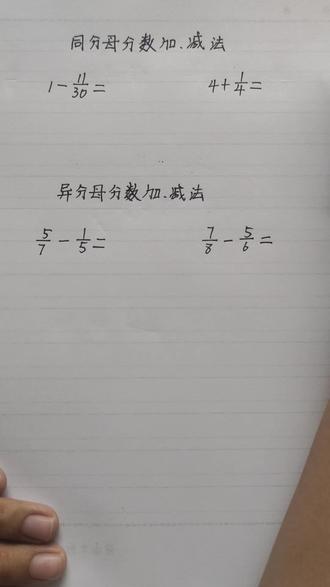 同分母分数加.减法
1-11/30= 4+1/4=
异分母分数加.减法
5/7-1/5= 7/8-5/6=